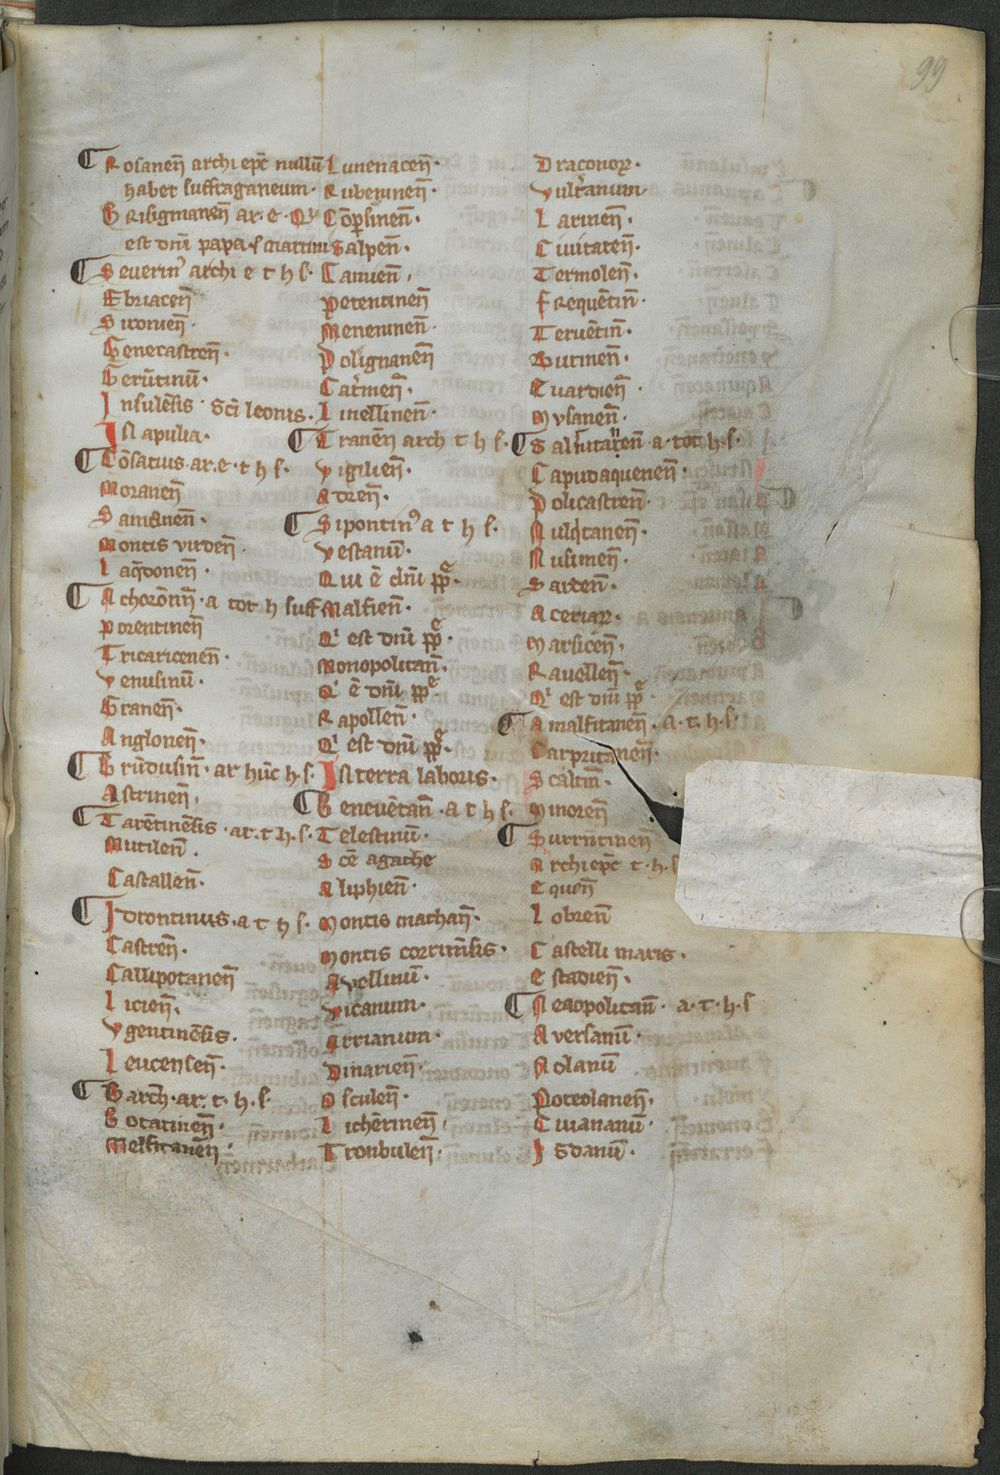 99
Rosanen̄ archiepc̄ nullū
habet suffraganeum.
Bisigmanen̄ ar. e. Qi
est dn̄i pape
Severin᾽ archi e t h s.
Ebriacen̄
Genecastren̄.
Gerūtinū.
Insulēsis. Sc̄i leonis.
In apulia.
Cōsanus. ar. e. t h s.
Moranen̄
Montis virden̄.
Laq̄donen̄.
a tot h suff
Potentinen̄
Tricaricenen̄.
Venusinū.
Granen̄.
Anglonen̄.
Brūdusin̄. ar. hūc h. s.
Astrinen̄.
Tarētinēsis. ar. t h. s.
Mutilen̄.
Castallen̄.
Idrontinus. a t h s.
Castren̄.
Callipotanen̄
Licien̄.
Vgentinēsis.
Leucensen̄.
Barēn̄. ar. t. h. s.
Botatinen̄.
Melfitanen̄.
Lunenacen̄.
Rubentinen̄.
Salpen̄.
Cannen̄.
Petentinen̄
Polignanen̄
Liuellinen̄.
Tranēn̄ arch t h s.
Vigilien̄.
Adren̄.
Sipontin᾽ a t h s.
Vestanū.
Qui ē dn̄i pp̄e.
Malfien̄.
Qi est dn̄i pp̄e.
Monopolitan̄.
Qi ē dn̄i pp̄e
Rapollen̄.
Qi est dn̄i pp̄e.
In terra laboris.
Beneuētan̄. a t h s.
Telestinū.
Sc̄e agathe
Aliphien̄.
Montis marhan̄.
Montis coruin̄sis.
Avellinū.
Vicanum.
Arrianum.
Dinarien̄.
Asculen̄.
Lichērinen̄.
Tronbulen̄.
Draconoꝝ.
Vult̄anum
Larinen̄.
Ciuitaten̄.
Termolen̄.
Frequētin̄.
Teruētin̄.
Burinen̄.
Guardien̄.
Musanen̄.
a. tot. h. s.
Capudaquenen̄.
Policastren̄.
Nusinen̄.
Sarden̄.
Aceriaꝝ.
Marsicēn̄.
Rauellen̄.
Qi est dn̄i pp̄e.
Amalfitanen̄. a. t. h. s.
Carpritanen̄.
Scālēn̄.
Minoren̄
Surrūtinen̄
Archiepc̄ t. h. s
Equen̄
Lobren̄
Castelli maris.
Estadien̄.
Neapolitan̄. a. t. h. s
Aversanū.
Nolanū
Poteolanen̄.
Cumananū.
Isclanū.